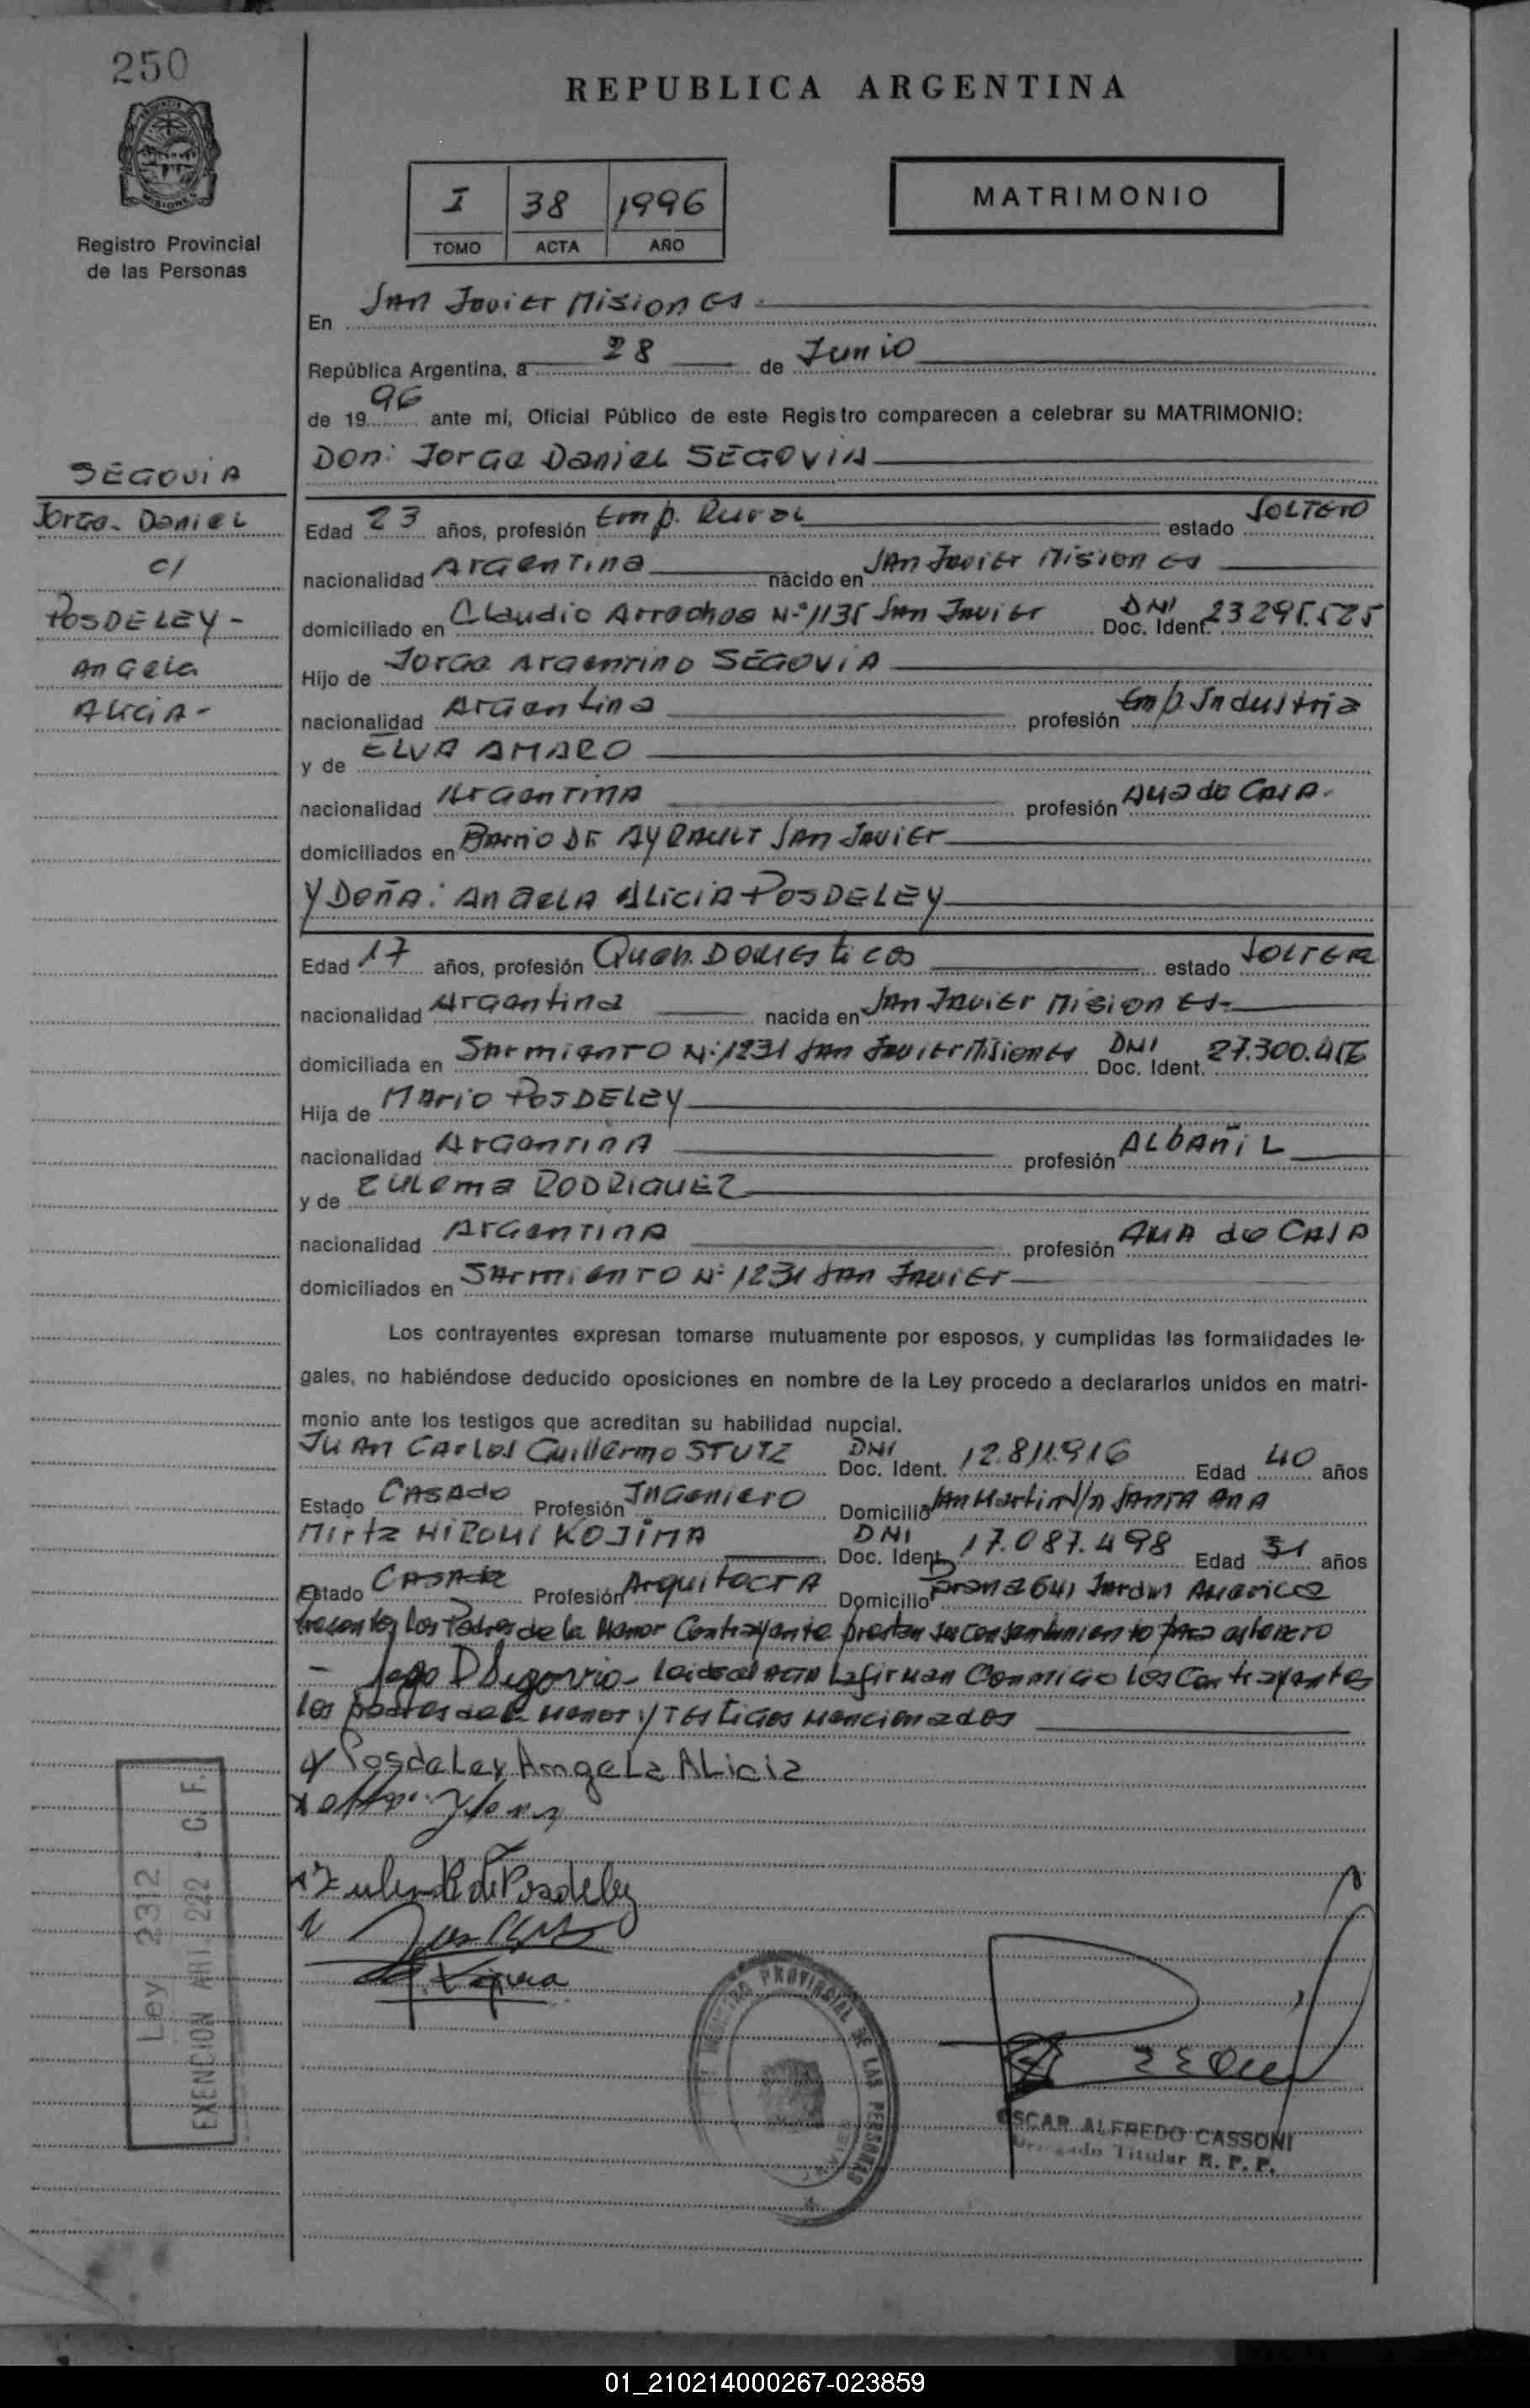 250
REPUBLICA ARGENTINA
I 38 1996
TOMO ACTA AÑO
MATRIMONIO
Registro Provincial
de las Personas
En San Javier Misiones
República Argentina, a 28 de Junio
de 1996 ante mí, Oficial Público de este Registro comparecen a celebrar su MATRIMONIO:
SEGOVIA
Jorge Daniel
c/
POSDELEY -
Angela
Alicia -
Don: Jorge Daniel SEGOVIA
Edad 23 años, profesión Emp. Rural estado SOLTERO
nacionalidad Argentina nacido en San Javier Misiones
domiciliado en Claudio Arrechea N° 1135 San Javier DNI Doc. Ident. 23295.525
Hijo de Jorge Argentino SEGOVIA
nacionalidad Argentina profesión Emp Industria
y de ELVA AMARO
nacionalidad Argentina profesión Ama de Casa.
domiciliados en Barrio DE AYRAULT San Javier
Y Doña: Angela Alicia POSDELEY
Edad 17 años, profesión Queh. Domesticos estado SOLTERA
nacionalidad Argentina nacida en San Javier Misiones
domiciliada en Sarmiento N° 1231 San Javier Misiones DNI Doc. Ident. 27.300.
Hija de Mario POSDELEY
nacionalidad Argentina profesión Albañil
y de Zulema RODRIGUEZ
nacionalidad Argentina profesión Ama de Casa
domiciliados en Sarmiento N° 1231 San Javier
Los contrayentes expresan tomarse mutuamente por esposos, y cumplidas las formalidades le-
gales, no habiéndose deducido oposiciones en nombre de la Ley procedo a declararlos unidos en matri-
monio ante los testigos que acreditan su habilidad nupcial.
Juan Carlos Guillermo STUTZ DNI Doc. Ident. 12.811.916 Edad 40 años
Estado Casado Profesión Ingeniero Domicilio San Martin S/n SANTA ANA
Mirta HIROMI KOJIMA DNI Doc. Ident. 17.087.498 Edad 31 años
Estado Casada Profesión Arquitecta Domicilio 641 Jardin America
Presentes los Padres de la Menor Contrayante prestan su consentimiento para este acto
- Jorge D Segovia - leida el acta la firman Conmigo los Contrayentes
los padres de la menor y Testigos mencionados
x Posdeley Angela Alicia
x Zulema R de Posdeley
Ley 2312
EXENCION ART. 242 - C. F.
REGISTRO PROVINCIAL DE LAS PERSONAS
OSCAR ALFREDO CASSONI
Delegado Titular R. P. P.
01_210214000267-023859